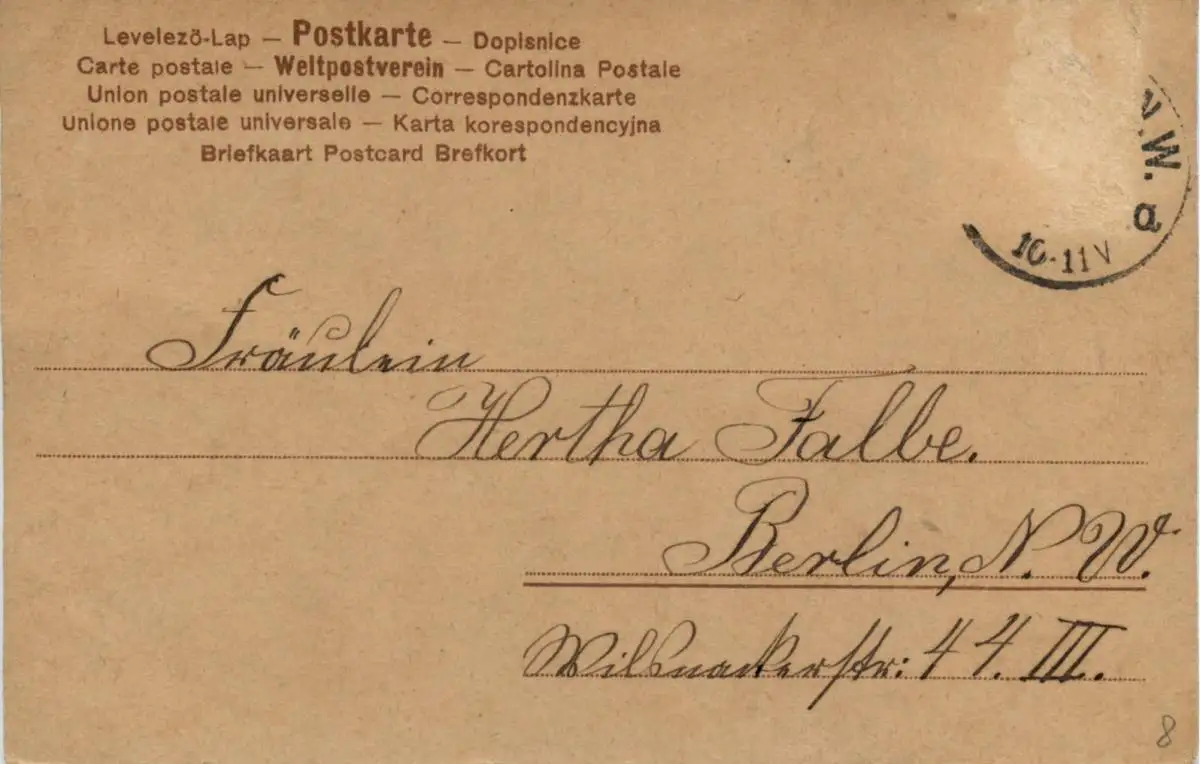 Levelezö-Lap — Postkarte — Dopisnice
Carte postale — Weltpostverein — Cartolina Postale
Union postale universelle — Correspondenzkarte
Unione postale universale — Karta korespondencyjna
Briefkaart Postcard Brefkort
N.W. a
10-11V
Fräulein
Hertha Falbe.
Berlin, N. W.
Wilsnackerstr: 44. III.
8